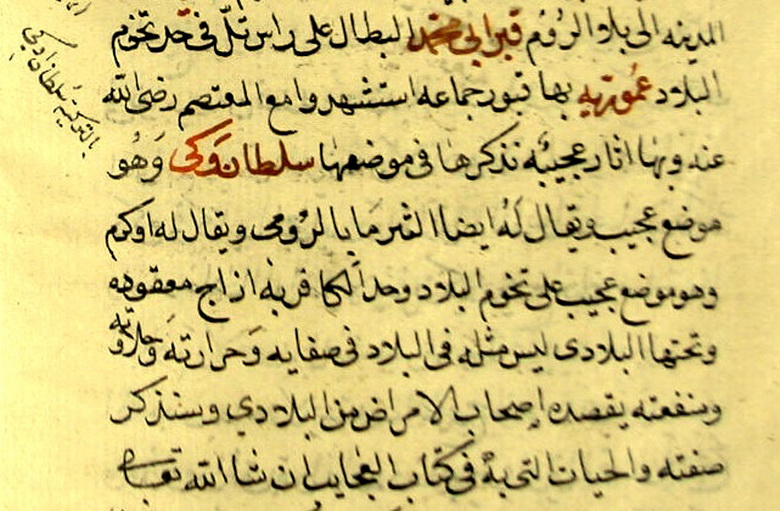 المدينه الى بلاد الروم قبر ابى محمد البطال على راس تل فى حد تخوم
البلاد عموريه بها قبور جماعه استشهدوا مع المعتصم رضى الله
عنه وبها اثار عجيبه نذكرها فى موضعها سلطان وكى وهو
موضع عجيب ويقال له ايضا الثرما بالرومى ويقال له اوكرم
وهو موضع عجيب على تخوم البلاد وحد الكافر به ازاج معقوده
وتحتها البلادى ليس مثله فى البلاد فى صفايه وحرارته وحلاوته
ومنفعته يقصده اصحاب الامراض من البلادي وسنذكر
صفته والحيات التى به فى كتاب العجايب ان شا الله تعالى
بالتركية سلطان اوكى